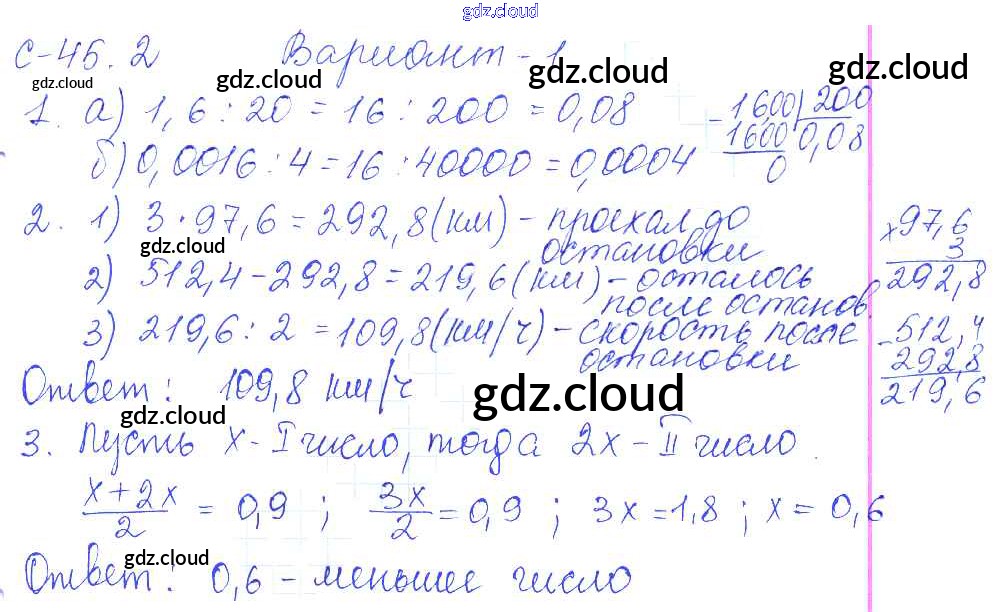 gdz.cloud
С-45.2 Вариант-1
gdz.cloud gdz.cloud gdz.cloud gdz.cloud
1. а) 1,6 : 20 = 16 : 200 = 0,08
- 1600 200
1600 0,08
0
б) 0,0016 : 4 = 16 : 40000 = 0,0004
2. 1) 3 · 97,6 = 292,8 (км) - проехал до
остановки
× 97,6
3
292,8
gdz.cloud
2) 512,4 - 292,8 = 219,6 (км) - осталось
после останов.
3) 219,6 : 2 = 109,8 (км/ч) - скорость после
остановки
- 512,4
292,8
219,6
Ответ: 109,8 км/ч
gdz.cloud gdz.cloud
3. Пусть x - I число, тогда 2x - II число.
x+2x/2 = 0,9 ; 3x/2 = 0,9 ; 3x = 1,8 ; x = 0,6
gdz.cloud gdz.cloud
Ответ: 0,6 - меньшее число
gdz.cloud gdz.cloud